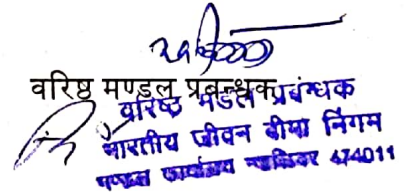 वरिष्ठ मण्डल प्रबन्धक
वरिष्ठ मंडल प्रबंधक
भारतीय जीवन बीमा निगम
मण्डल कार्यालय ग्वालियर 474011